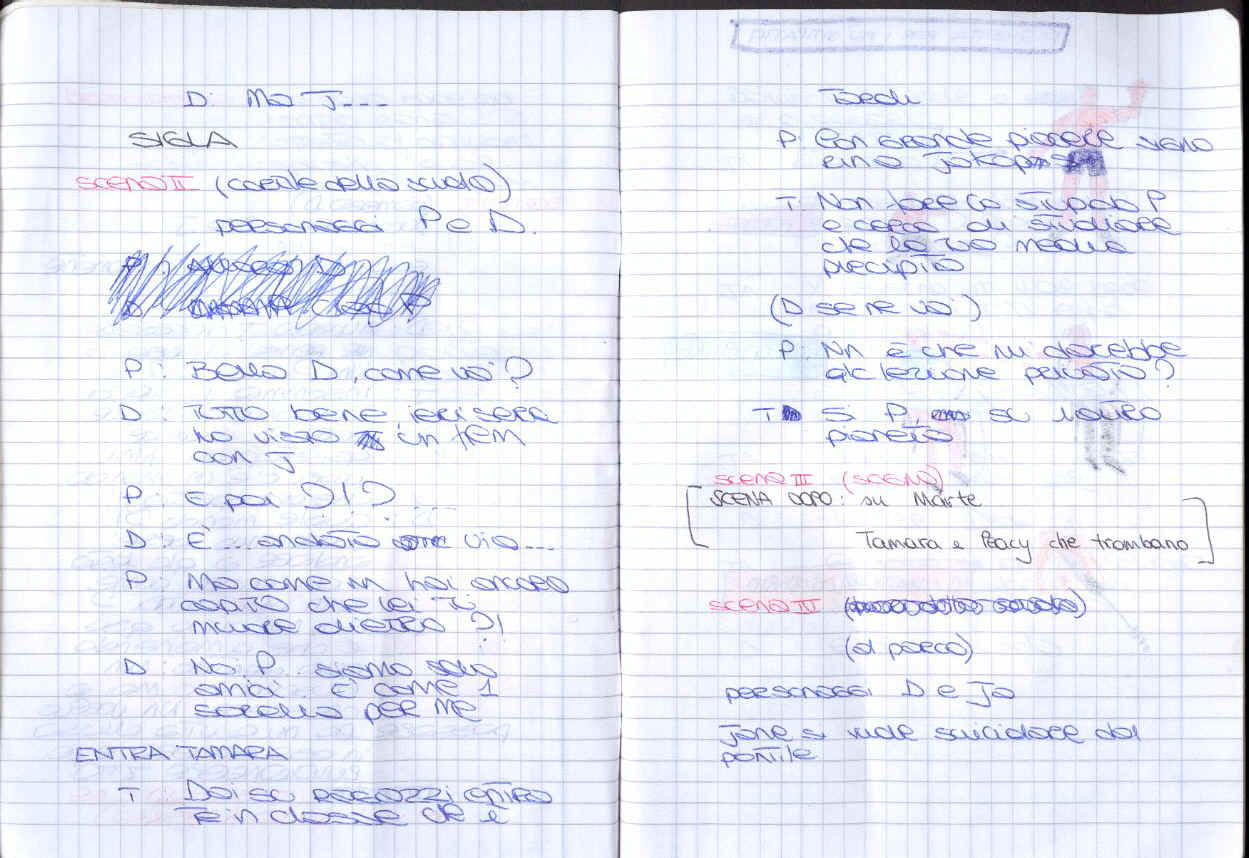 D: Ma J---
SIGLA
SCENA II (cortile della scuola)
personaggi P e D.
P: Bella D, come va?
D: Tutto bene, ieri sera
ho visto un film
con J
P: E poi ?!? ...
D: È... andata via...
P: Ma come nn hai ancora
capito che lei ti
muore dietro ?!
D: No P. siamo solo
amici. È come 1
sorella per me
ENTRA TAMARA
T: Dai su ragazzi entra
te in classe che è
tardi
P: Con grande piacere siano
T: Non fare lo stupido P
e cerca di studiare
che la tua media
precipita
(D se ne va)
P: Nn è che mi darebbe
qlc lezione privata?
T: Si P, su un altro
pianeta
SCENA III (SCENA)
SCENA DOPO: su Marte
Tamara e Peacy che trombano
SCENA IV
(al parco)
personaggi D e Jo
Jone si vuole suicidare dal
pontile